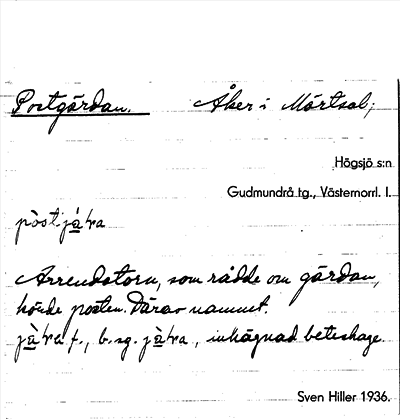 Postgårdan. Åker i Mörtsal;
Högsjö s:n
Gudmundrå tg., Västernorrl. l.
pòstjá̱ʹra
Arrendatorn, som rådde om gårdan,
körde posten. Därav namnet.
f., b. sg. inhägnad beteshage.
Sven Hiller 1936.